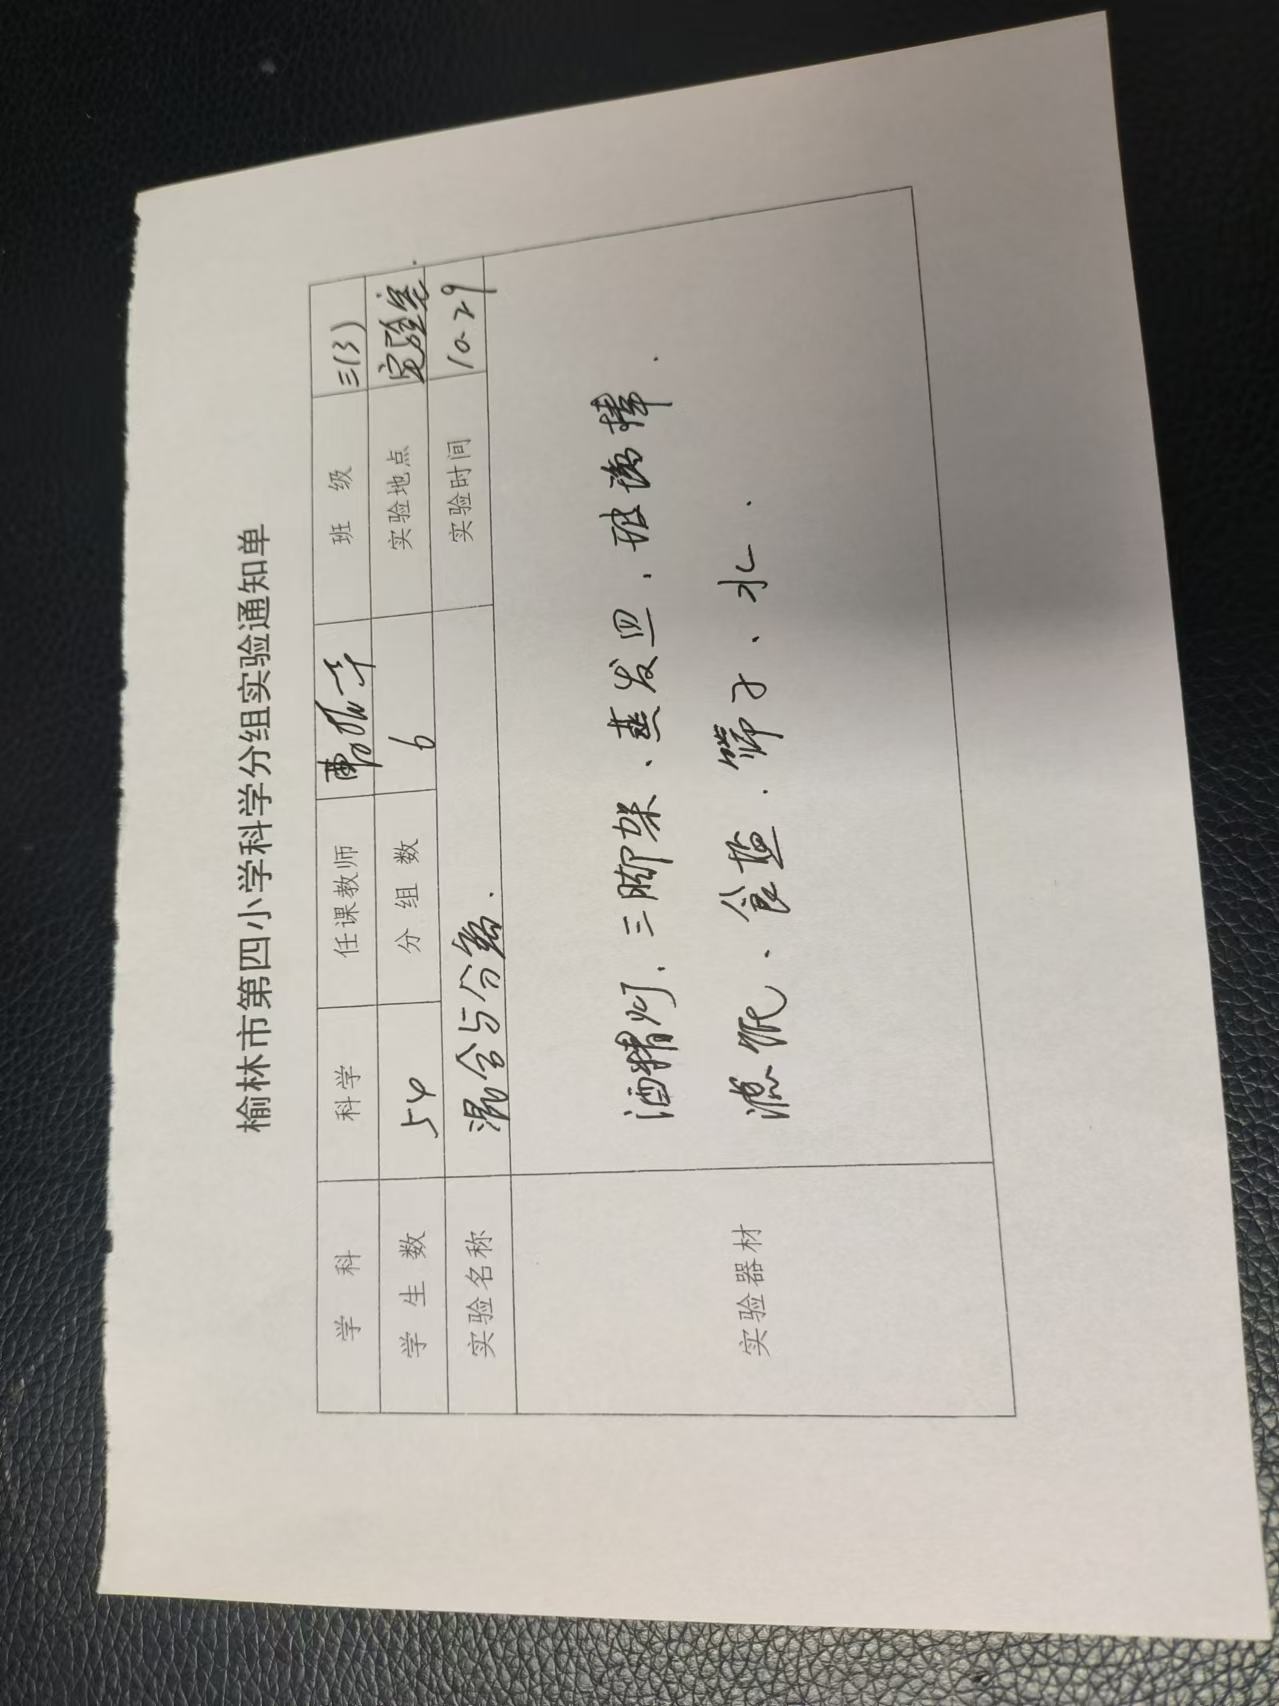 榆林市第四小学科学分组实验通知单
学 科 科学 任课教师 班 级 三(3)
学 生 数 54 分 组 数 6 实验地点 实验室
实验名称 混合与分离. 实验时间 10-29
实验器材 酒精灯、三脚架、蒸发皿、玻璃棒.
滤纸、食盐、筛子、水.